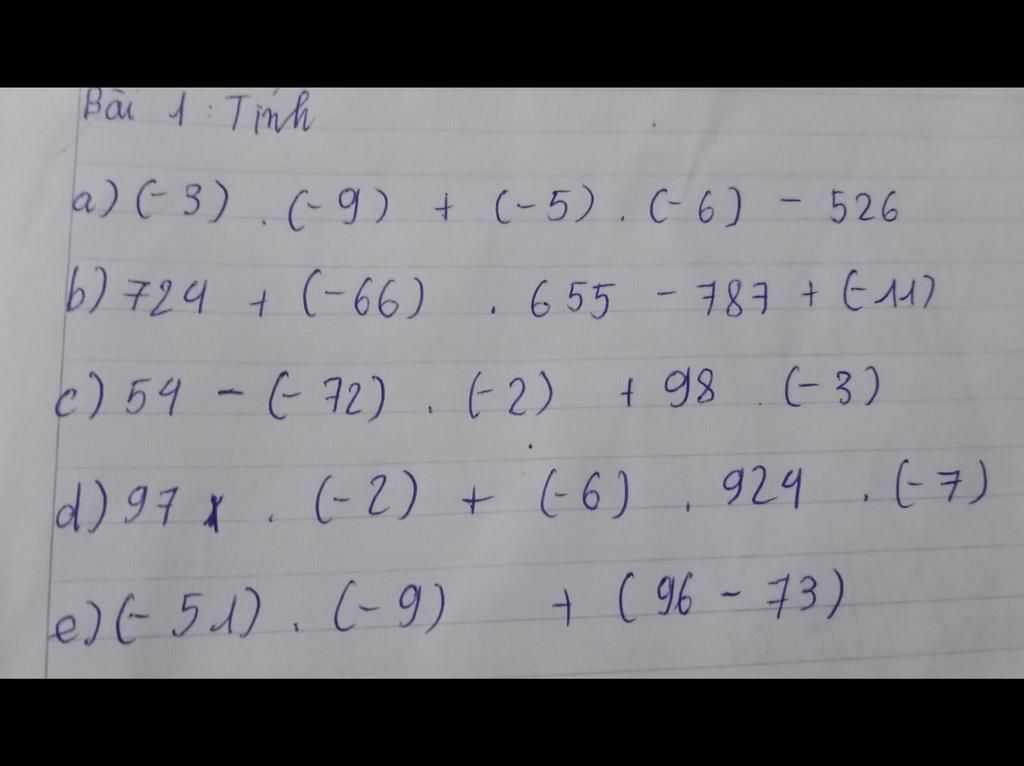 Bài 1 : Tính
a) (-3) . (-9) + (-5) . (-6) - 526
b) 724 + (-66) . 655 - 787 + (-11)
c) 54 - (-72) . (-2) + 98 . (-3)
d) 97 . (-2) + (-6) . 924 . (-7)
e) (-51) . (-9) + (96 - 73)